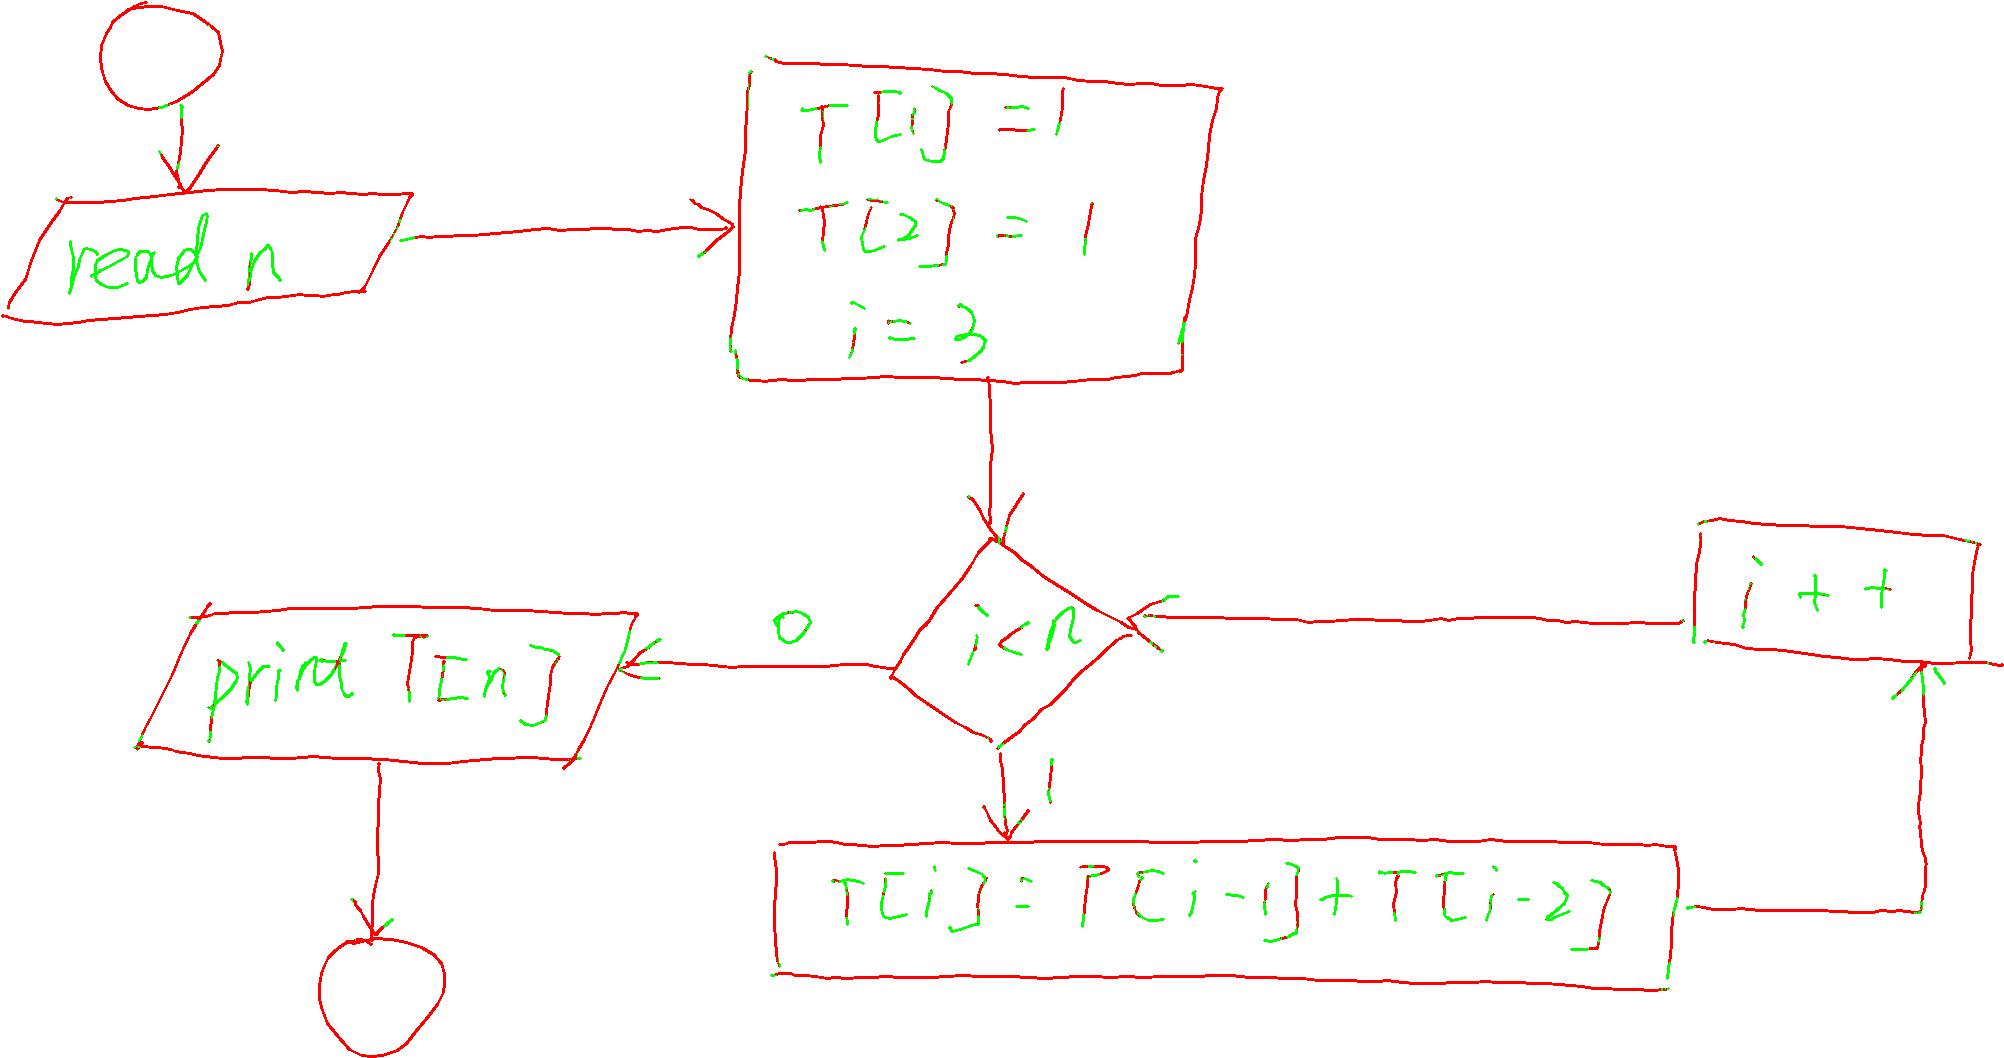 read n
T[1] = 1
T[2] = 1
i = 3
i < n
0
1
i + +
print T[n]
T[i] = T[i-1] + T[i-2]